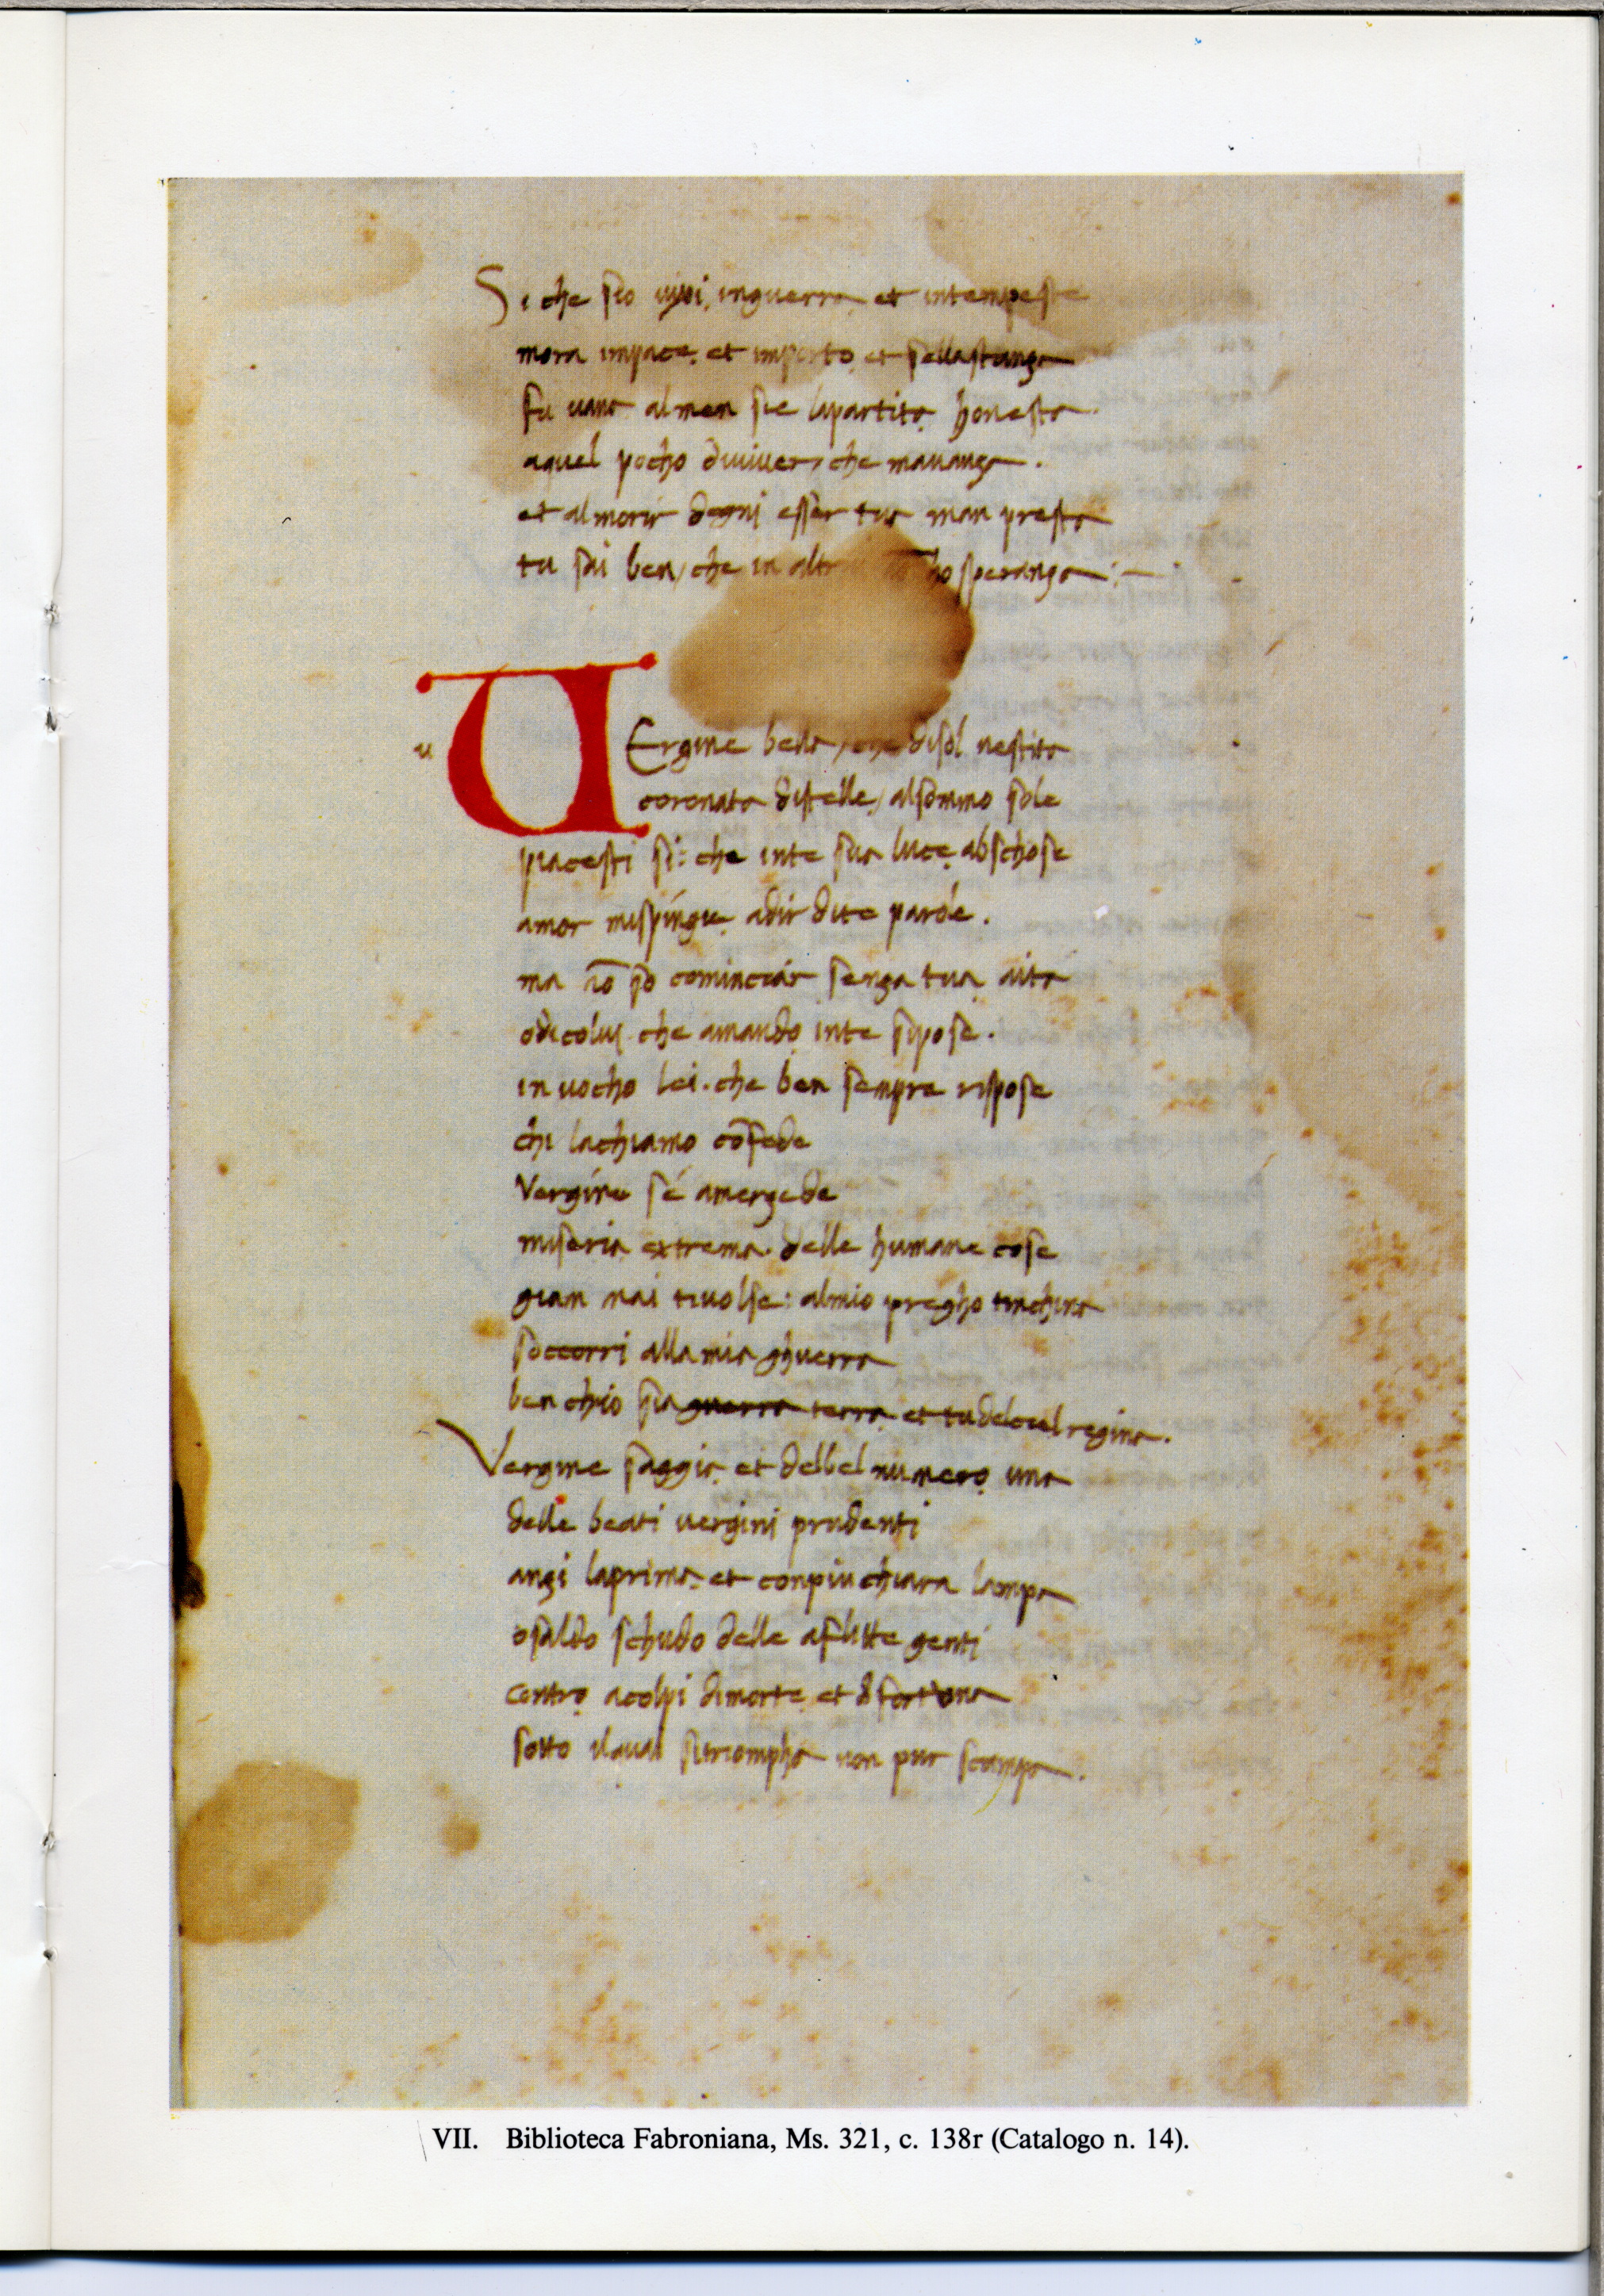 Si che sio vivi, inguerra et intempeste
mora impace. et importo. et sellastanza
fu vana almen sie lapartita honesta.
aquel pocho diviver, che mavanza.
et al morir degni esser tua man presta
tu sai ben, che in altr nō ho speranza:—
u
UErgine bella, che disol vestita
coronata distelle, alsommo sole
piacesti si: che inte sua luce abschose
amor mispingie adir dite parole.
ma nō so cominciar senza tua aita
odicolui che amando inte sipose.
in vocho lei. che ben sempre rispose
chi lachiamo cōfede
Vergine sé amerzede
miseria extrema. delle humane cose
giam mai tivolse: almio pregho tinchina
soccorri alla mia ghuerra
ben chio sia guerra terra et tu delciel regina.
Vergine saggia et delbel numero una
delle beati vergini prudenti
anzi laprima. et conpiu chiara lampa
osaldo schudo delle aflitte genti
contra acolpi dimorte et d fortuna
sotto ilqual sitriompha non pur scampa.
VII. Biblioteca Fabroniana, Ms. 321, c. 138r (Catalogo n. 14).